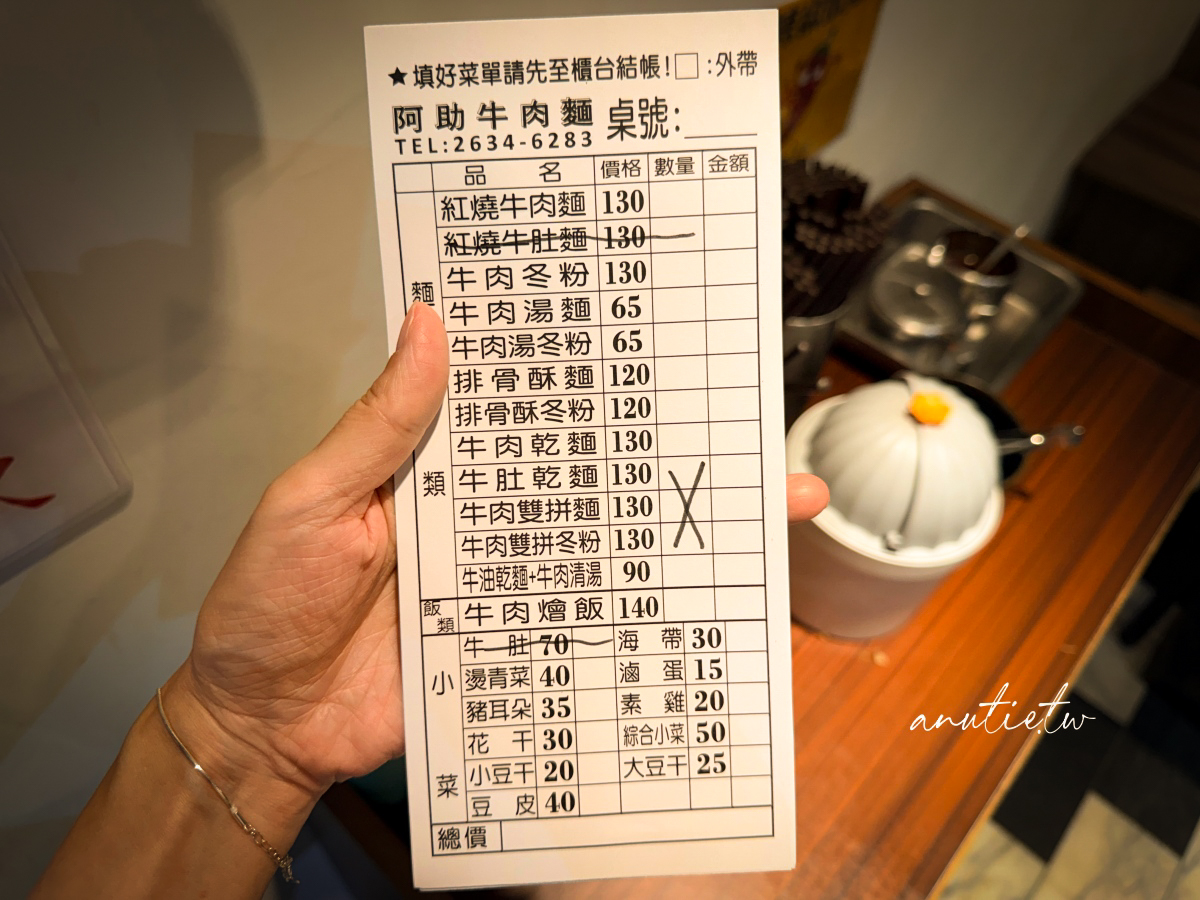 ★填好菜單請先至櫃台結帳!□:外帶
阿助牛肉麵 桌號:
TEL:2634-6283
品名 價格 數量 金額
麵類
紅燒牛肉麵 130
紅燒牛肚麵 130
牛肉冬粉 130
牛肉湯麵 65
牛肉湯冬粉 65
排骨酥麵 120
排骨酥冬粉 120
牛肉乾麵 130
牛肚乾麵 130
牛肉雙拼麵 130
牛肉雙拼冬粉 130
牛油乾麵+牛肉清湯 90
飯類 牛肉燴飯 140
小菜
牛肚 70 海帶 30
燙青菜 40 滷蛋 15
豬耳朵 35 素雞 20
花干 30 綜合小菜 50
小豆干 20 大豆干 25
豆皮 40
總價
anutie.tw